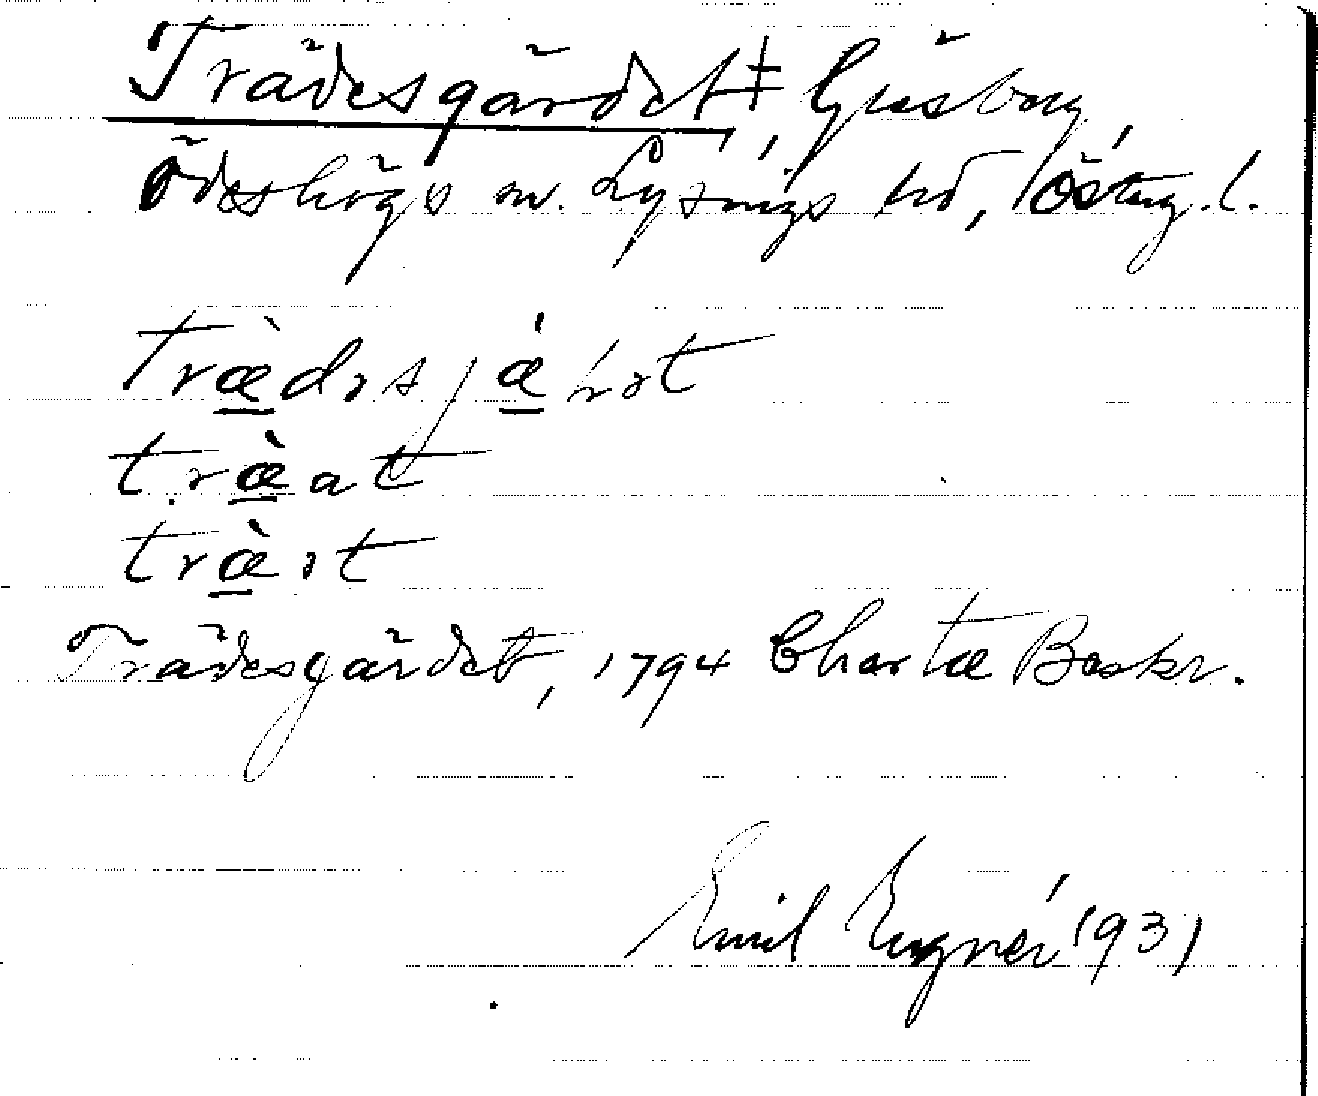 Trädesgärdet ‡, Gisborg,
Ödeshögs sn. Lysings hd, Österg. l.
træ̀dɜsjǽrɜt
træ̀at
træ̀ɜt
Trädesgärdet, 1794 Charta Beskr.
Emil Engnér 1931